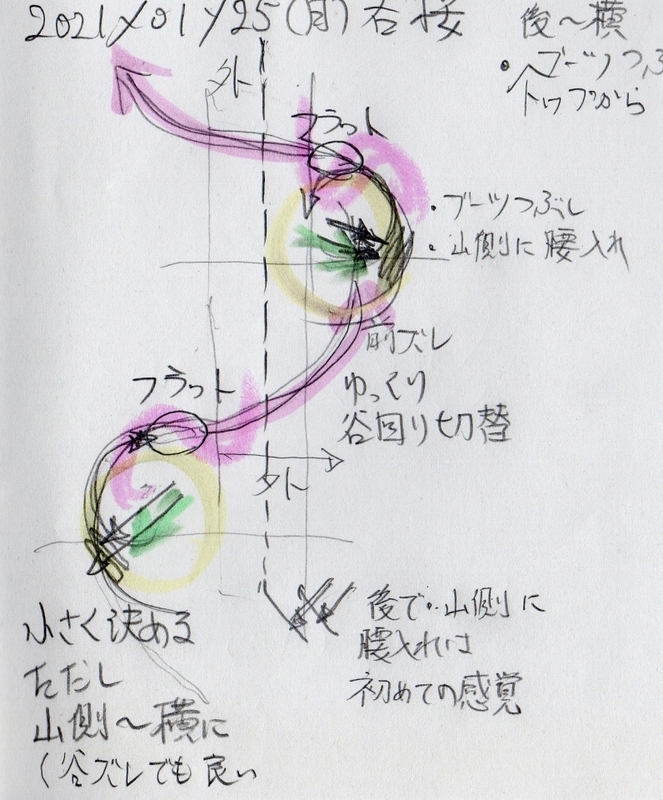 2021/01/25(月)
後〜横
・ブーツつぶ
トップから
外
フラット
・ブーツつぶし
・山側に腰入れ
前ズレ
ゆっくり
谷回り切替
フラット
外
後で‥山側に
腰入れは
初めての感覚
小さく決める
ただし
山側〜横に
(谷ズレでも良い